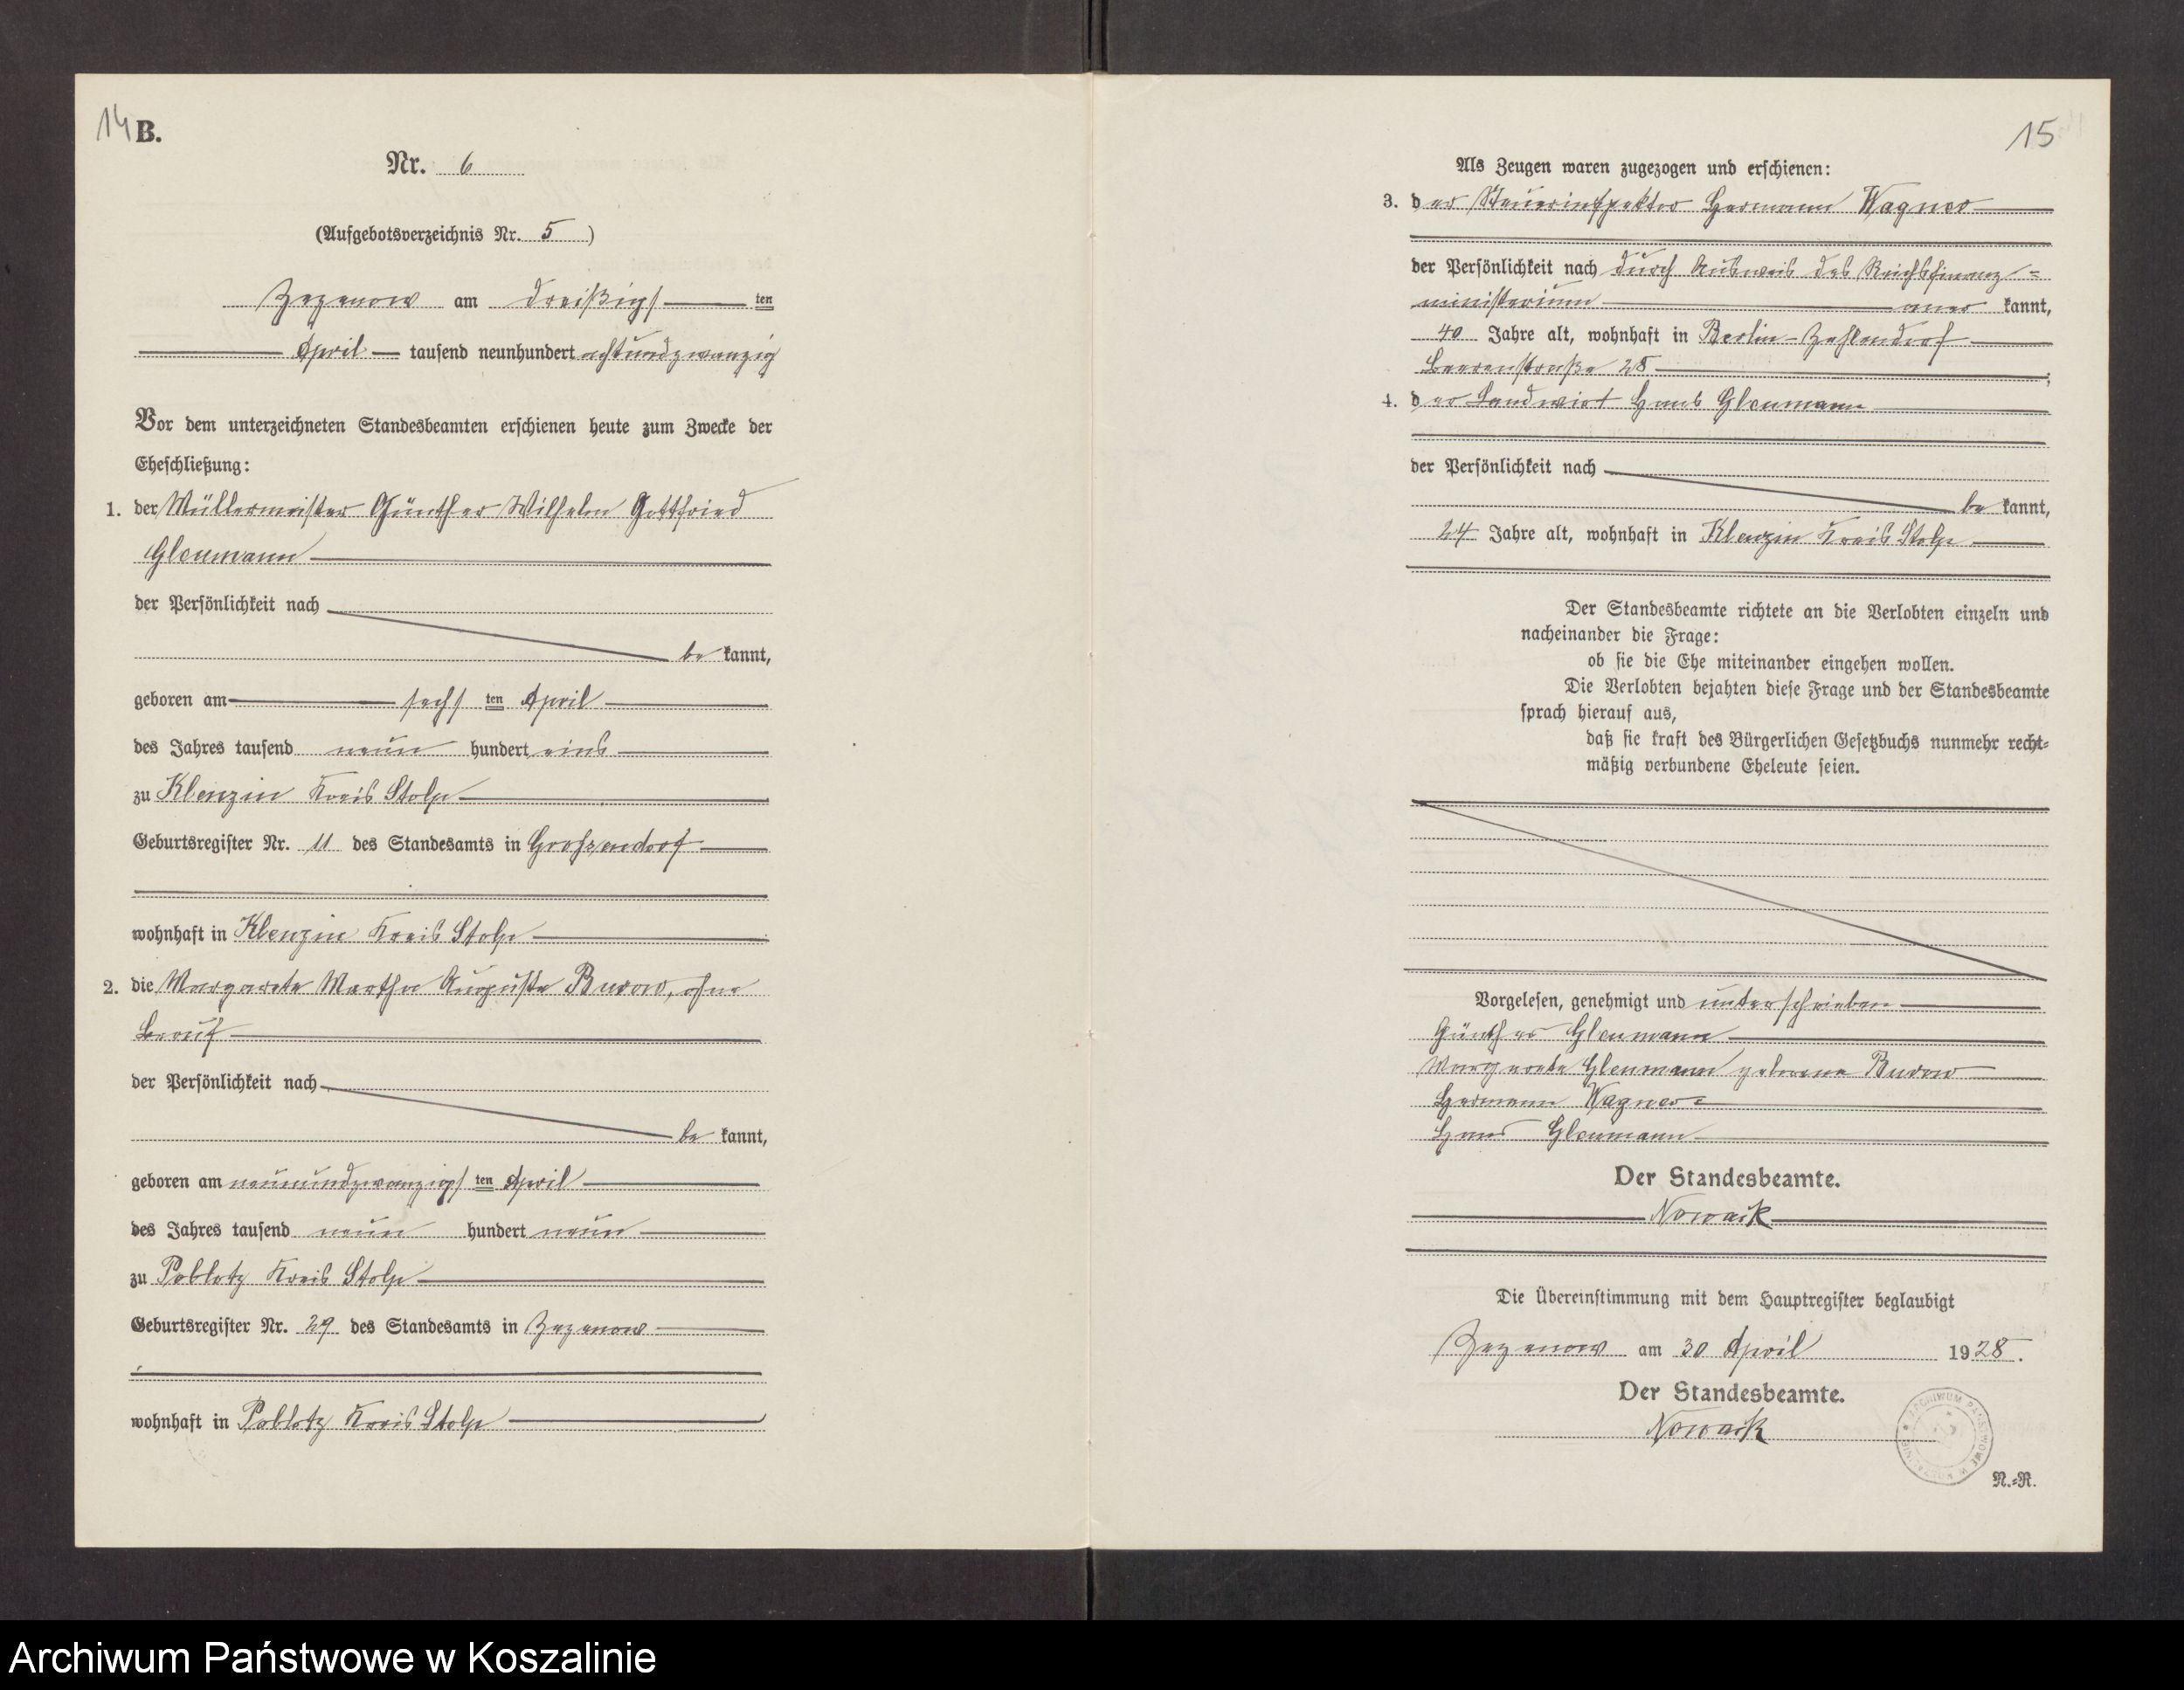 14 B.
Nr. 6
(Aufgebotsverzeichnis Nr. 5)
Zezenow am dreißigsten
April tausend neunhundert achtundzwanzig
Vor dem unterzeichneten Standesbeamten erschienen heute zum Zwecke der
Eheschließung:
1. der Müllermeister Günther Wilhelm Gottfried
Gleumann
der Persönlichkeit nach
bekannt,
geboren am sechsten April
des Jahres tausend neun hundert eins
zu Klenzin Kreis Stolp
Geburtsregister Nr. 11 des Standesamts in Grossendorf
wohnhaft in Klenzin Kreis Stolp
2. die Margarete Martha Auguste Burow, ohne
Beruf
der Persönlichkeit nach
bekannt,
geboren am neunundzwanzigsten April
des Jahres tausend neun hundert neun
zu Poblotz Kreis Stolp
Geburtsregister Nr. 29 des Standesamts in Zezenow
wohnhaft in Poblotz Kreis Stolp
15
Als Zeugen waren zugezogen und erschienen:
3. der Steuerinspektor Hermann Wagner
der Persönlichkeit nach durch Ausweis des Reichsfinanz=
ministerium anerkannt,
40 Jahre alt, wohnhaft in Berlin-Zehlendorf
Beerenstraße 28;
4. der Landwirt Hans Gleumann
der Persönlichkeit nach
bekannt,
24 Jahre alt, wohnhaft in Klenzin Kreis Stolp
Der Standesbeamte richtete an die Verlobten einzeln und
nacheinander die Frage:
ob sie die Ehe miteinander eingehen wollen.
Die Verlobten bejahten diese Frage und der Standesbeamte
sprach hierauf aus,
daß sie kraft des Bürgerlichen Gesetzbuchs nunmehr recht=
mäßig verbundene Eheleute seien.
Vorgelesen, genehmigt und unterschrieben
Günther Gleumann
Margarete Gleumann geborene Burow
Hermann Wagner
Hans Gleumann
Der Standesbeamte.
Nowack
Die Übereinstimmung mit dem Hauptregister beglaubigt
Zezenow am 30 April 1928.
Der Standesbeamte.
Nowack
ARCHIWUM PAŃSTWOWE W KOSZALINIE
N.=R.
Archiwum Państwowe w Koszalinie